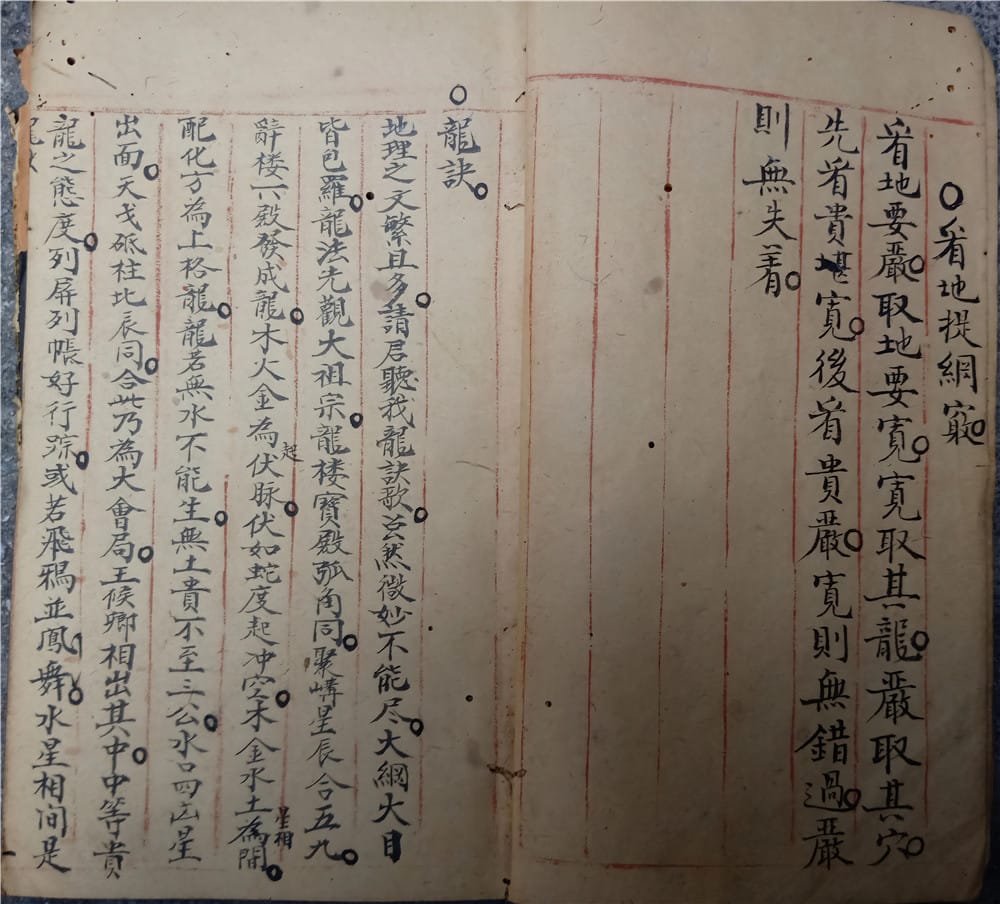 ○看地提綱竅
看地要嚴。取地要寬。寬取其龍。嚴取其穴。
先看貴堪寬。後看貴嚴。寬則無錯過。嚴
則無失着。
○
龍訣。
地理之文繁且多。請君聽我龍訣歌。玄然微妙不能尽。大綱大目
皆包羅。龍法先觀大祖宗。龍楼寶殿弧角同。聚講星辰合五九。
辭楼下殿發成龍。木火金為起伏脉。伏如蛇度起冲空。木金水土為星相間。
配化方為上格龍。龍若無水不能生。無土貴不至三公。水口四凶星
出面。天戈砥柱北辰同。合此乃為大會局。王候卿相出其中。中等貴
龍之態度。列屏列帳好行踪。或若飛鴉並鳳舞。水星相间是